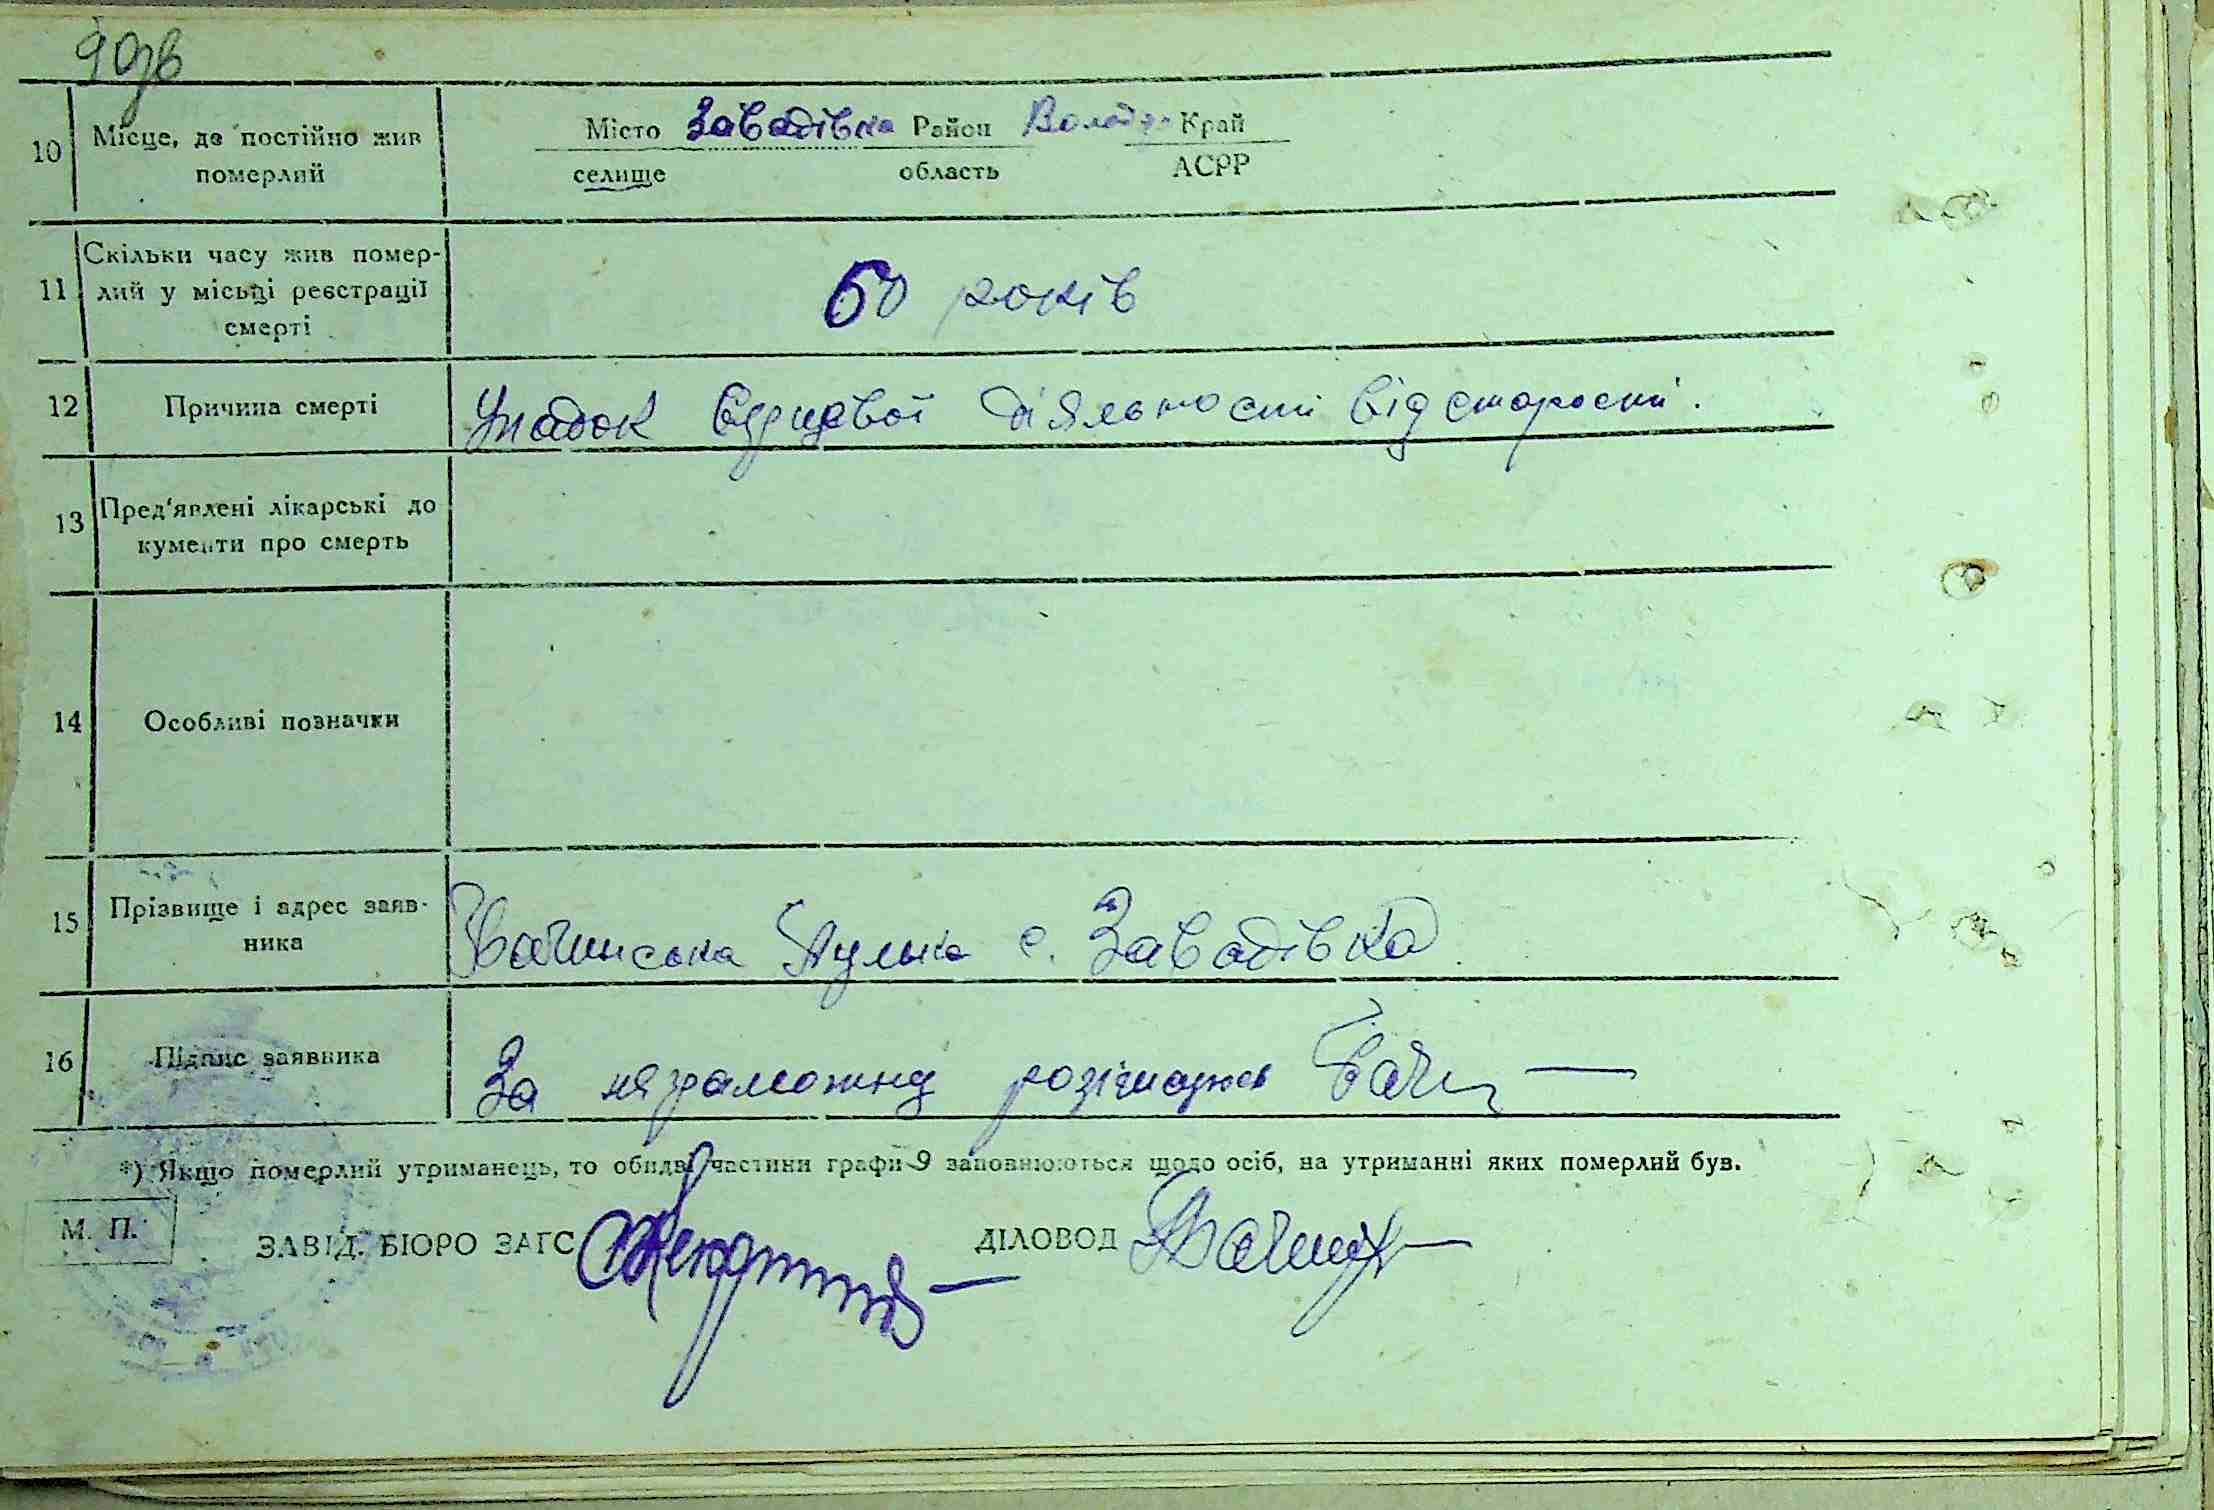 9 зв
10 Місце, де постійно жив Місто Завадівка Район Край
померлий селище область АСРР
Скільки часу жив помер-
11 лий у місьці реєстрації 60 років
смерті
12 Причина смерті Упадок сердцевої діяльності від старости.
13 Пред'явлені лікарські до
кументи про смерть
14 Особливі позначки
15 Прізвище і адрес заяв-
ника Качинська с. Завадівка
16 Підпис заявника За неграмотну
*) Якщо померлий утриманець, то обидві частини графи 9 заповнюються щодо осіб, на утриманні яких померлий був.
М. П.
ЗАВІД. БЮРО ЗАГС ДІЛОВОД